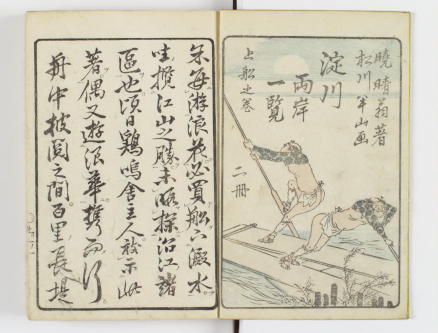 暁晴翁著
松川半山画
淀川
両岸
一覧
上船之巻
二冊
余毎游浪華必買船下澱水
往攬江山之勝未暇探沿江諸
區也頃日鶏鳴舎主人被示此
著偶又遊浪華携而行
舟中披圖之間百里長堤